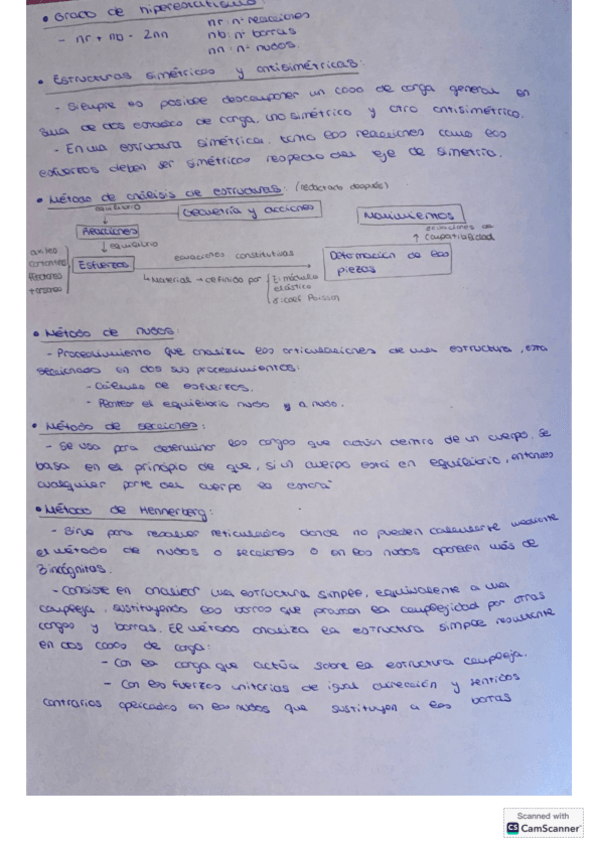 • Grado de hiperestatismo:
nr: nº reacciones
- nr + nb - 2nn
nb: nº barras
nn: nº nudos.
• Estructuras simétricas y antisimétricas:
- Siempre es posible descomponer un caso de carga general en
suma de dos estados de carga, uno simétrico y otro antisimétrico.
- En una estructura simétrica, tanto las reacciones como los
esfuerzos deben ser simétricos respecto del eje de simetría.
• Método de análisis de estructuras: (redactado después)
equilibrio
Geometría y acciones
Movimientos
Reacciones
ecuaciones de
compatibilidad
↓ equilibrio
axiles
cortantes
flectores
torsores
Esfuerzos
ecuaciones constitutivas
Deformación de las
piezas
↳ Material → definido por
E: módulo
elástico
coef Poisson
• Método de nudos:
- Procedimiento que analiza las articulaciones de una estructura, esta
seccionado en dos sub procedimientos:
- Cálculo de esfuerzos.
- Plantear el equilibrio nudo y a nudo.
• Método de secciones:
- Se usa para determinar las cargas que actúan dentro de un cuerpo. Se
basa en el principio de que, si un cuerpo está en equilibrio, entonces
cualquier parte del cuerpo lo estará
• Método de Henneberg:
- Sirve para resolver reticulados donde no pueden calcularse mediante
el método de nudos o secciones o en los nudos aparecen más de
3 incógnitas.
- Consiste en analizar una estructura simple, equivalente a una
compleja, sustituyendo las barras que provocan la complejidad por otras
cargas y barras. El método analiza la estructura simple resultante
en dos casos de carga:
- Con la carga que actúa sobre la estructura compleja.
- Con las fuerzas unitarias de igual dirección y sentidos
contrarios aplicadas en los nudos que sustituyen a las barras
Scanned with
CS CamScanner